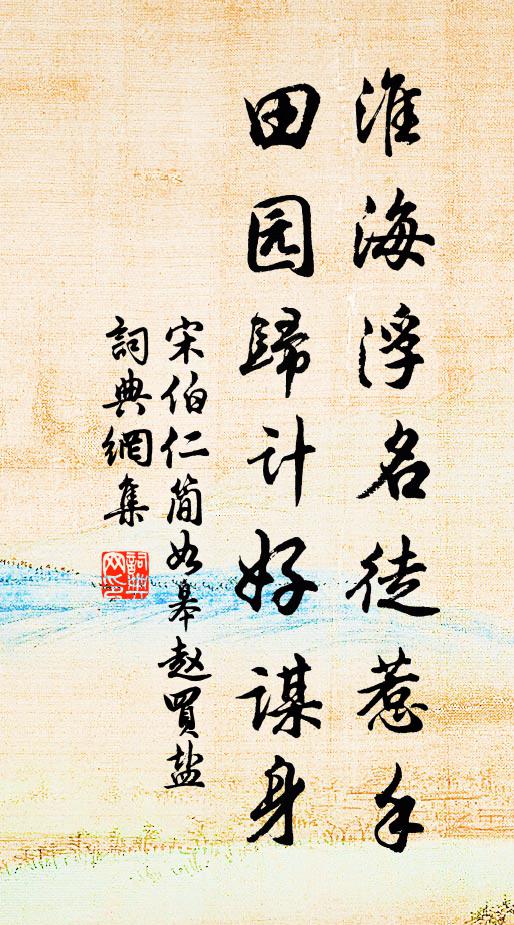 淮海浮名徒惹手
田园歸计好谋身
宋伯仁简如皋赵買盐
詞典網集